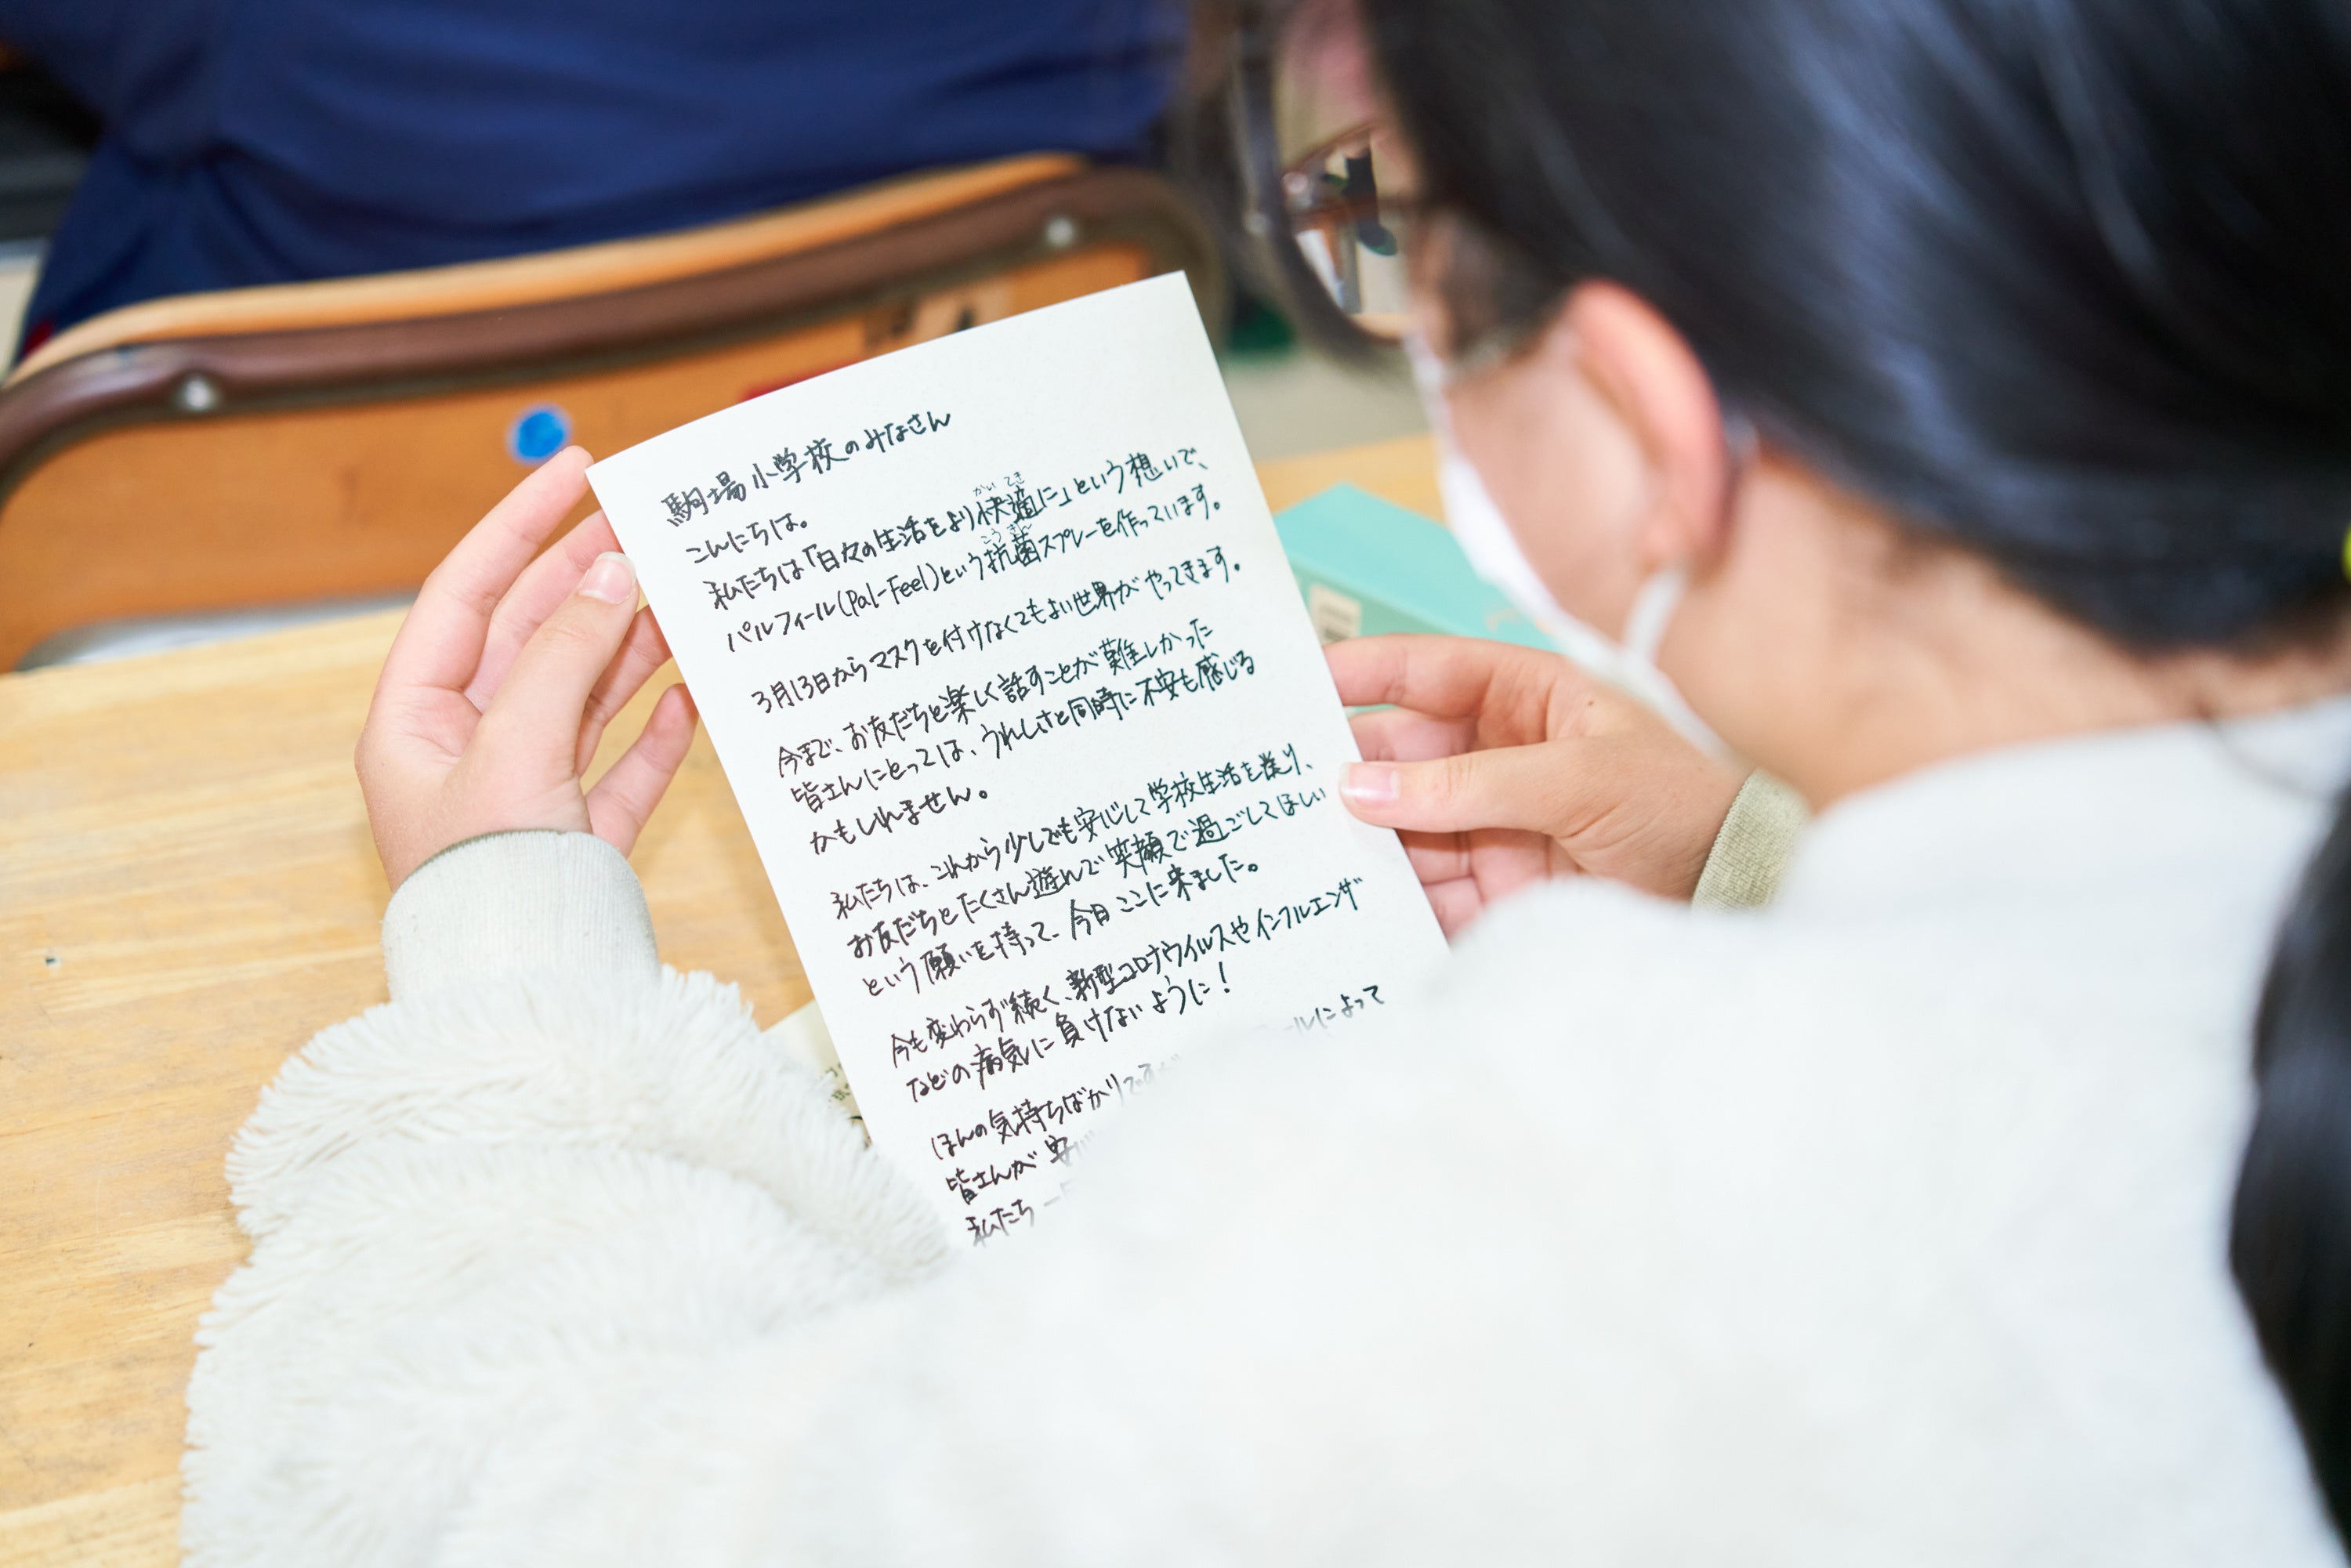 駒場小学校のみなさん
こんにちは。
私たちは「日々の生活をより快適に」という想いで、
かいてき
パルフィール(Pal-Feel)という抗菌スプレーを作っています。
こうきん
3月13日からマスクを付けなくてもよい世界がやってきます。
今まで、お友だちと楽しく話すことが難しかった
皆さんにとっては、うれしさと同時に不安も感じる
かもしれません。
私たちは、これから少しでも安心して学校生活を送り、
お友だちとたくさん遊んで笑顔で過ごしてほしい
という願いを持って、今日ここに来ました。
今も変わらず続く、新型コロナウイルスやインフルエンザ
などの病気に負けないように！
ほんの気持ちばかりですが ールによって
皆さんが安
私たち一